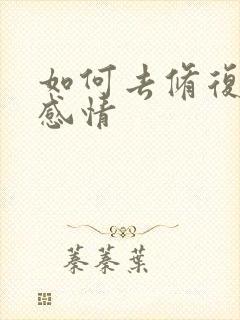 如何去脩復
感情
蓁蓁葉